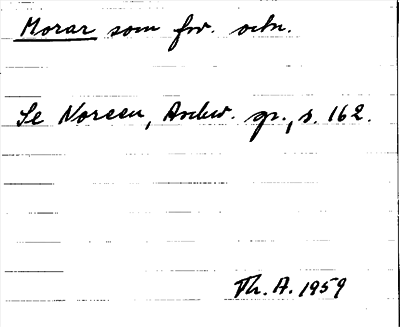 Morar som fsv. ortn.
Se Noreen, Ärvtav. gr., s. 162.
Th. A. 1959